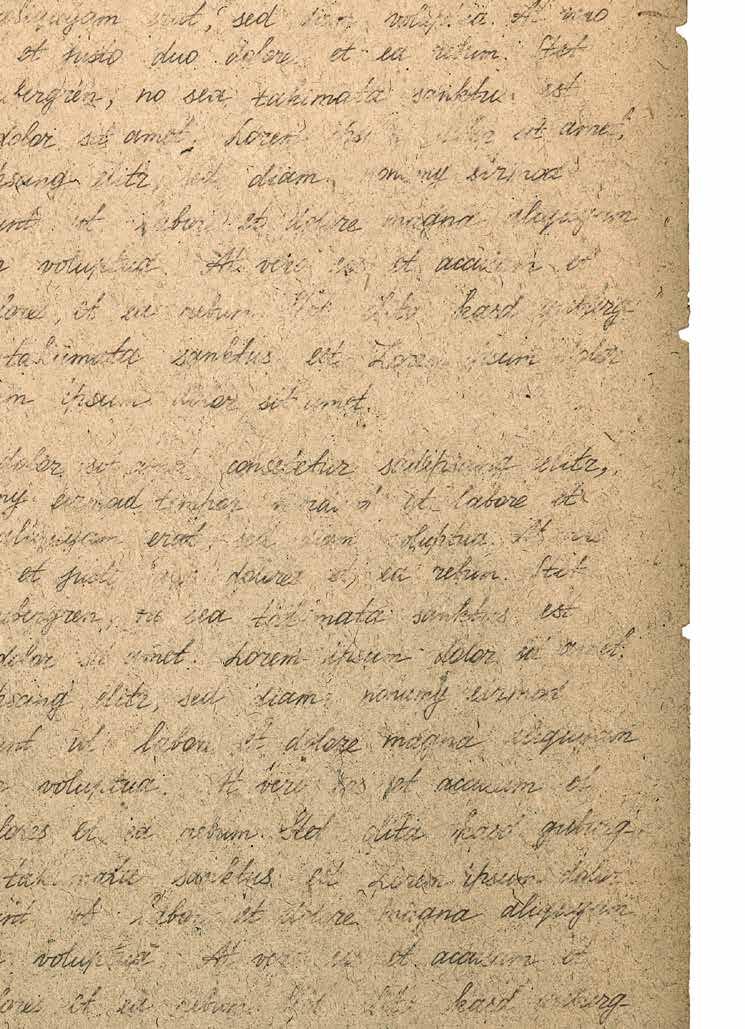 aliquyam erat, sed diam voluptua. At vero
et justo duo dolore et ea rebum. Stet
bergren, no sea takimata sanktus est
dolor sit amet. Lorem dolor sit amet.
psung elitr, sed diam nonumy eirmod
unt ut labore et dolore magna aliquyam
voluptua. At vero eos et accusam et
lores, et ea rebum. Stet dita kasd guberg
takiimata sanktus est Lorem ipsum dolor
m ipsum dolor sit amet.
dolor sit amet consetetur sadipscing elitr,
my eirmod tempor ut labore et
aliquyam erat, sed diam voluptua. At
et justo dolores et ea rebum. Stet
bergren, sea takimata sanktus est
dolor sit amet. Lorem ipsum dolor sit amet.
pscing elitr, sed diam nonumy eirmod
unt ut labore et dolore magna aliquyam
voluptua. At vero eos et accusam et
lores et ea rebum. Stet dita kasd guberg
takimata sanktus est Lorem ipsum dolor
unt ut labore et dolore magna aliquyam
voluptua At vero et accusam et
lores et ea rebum kasd guberg